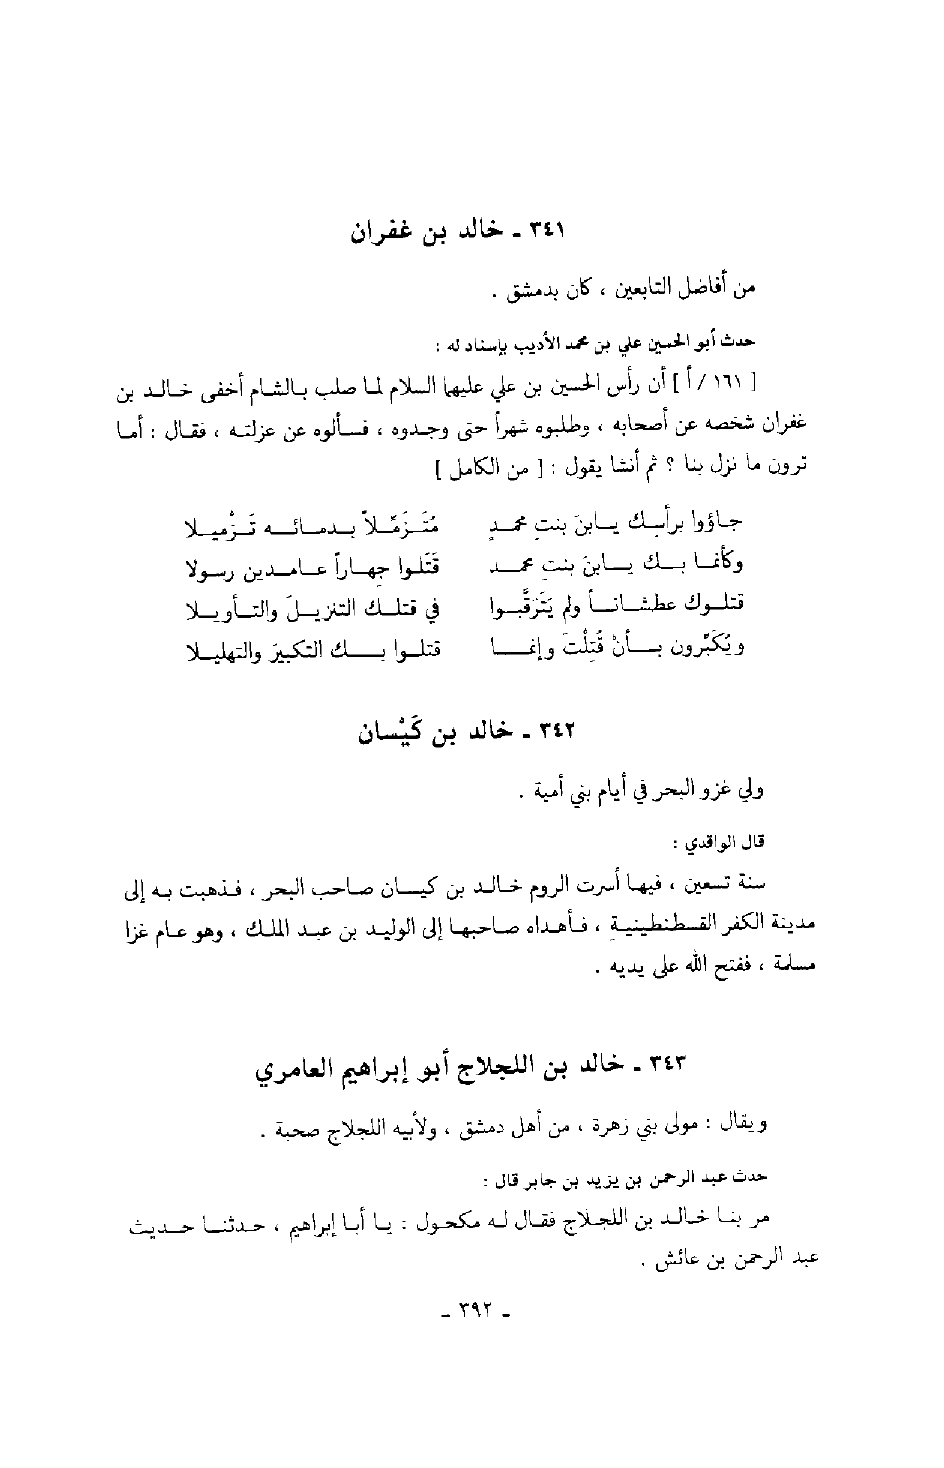 ٣٤١ ـ خالد بن غفران
من أفاضل التابعين ، كان بدمشق .
حدث أبو الحسين علي بن محمد الأديب بإسناد له :
[ ١٦١/أ ] أن رأس الحسين بن علي عليهما السلام لما صلب بالشام أخفى خالد بن
غفران شخصه عن أصحابه ، وطلبوه شهراً حتى وجدوه ، فسألوه عن عزلته ، فقال : أما
ترون ما نزل بنا ؟ ثم أنشا يقول : [ من الكامل ]
جاؤوا برأسِك يابنَ بنتِ محمدٍ مُتَزَمِّلاً بدمائه تَزْميلا
وكأنما بك يابنَ بنتِ محمد قَتَلوا جهاراً عامدين رسولا
قتلوك عطشاناً ولم يَتَرَقَّبوا في قتلك التنزيلَ والتأويلا
ويُكَبِّرون بأنْ قُتِلْتَ وإنما قتلوا بك التكبيرَ والتهليلا
٣٤٢ ـ خالد بن كَيْسان
ولي غزو البحر في أيام بني أمية .
قال الواقدي :
سنة تسعين ، فيها أسرت الروم خالد بن كيسان صاحب البحر ، فذهبت به إلى
مدينة الكفر القسطنطينية ، فأهداه صاحبها إلى الوليد بن عبد الملك ، وهو عام غزا
مسلمة ، ففتح الله على يديه .
٣٤٣ ـ خالد بن اللجلاج أبو إبراهيم العامري
ويقال : مولى بني زهرة ، من أهل دمشق ، ولأبيه اللجلاج صحبة .
حدث عبد الرحمن بن يزيد بن جابر قال :
مر بنا خالد بن اللجلاج فقال له مكحول : يا أبا إبراهيم ، حدثنا حديث
عبد الرحمن بن عائش .
ـ ٣٩٢ ـ